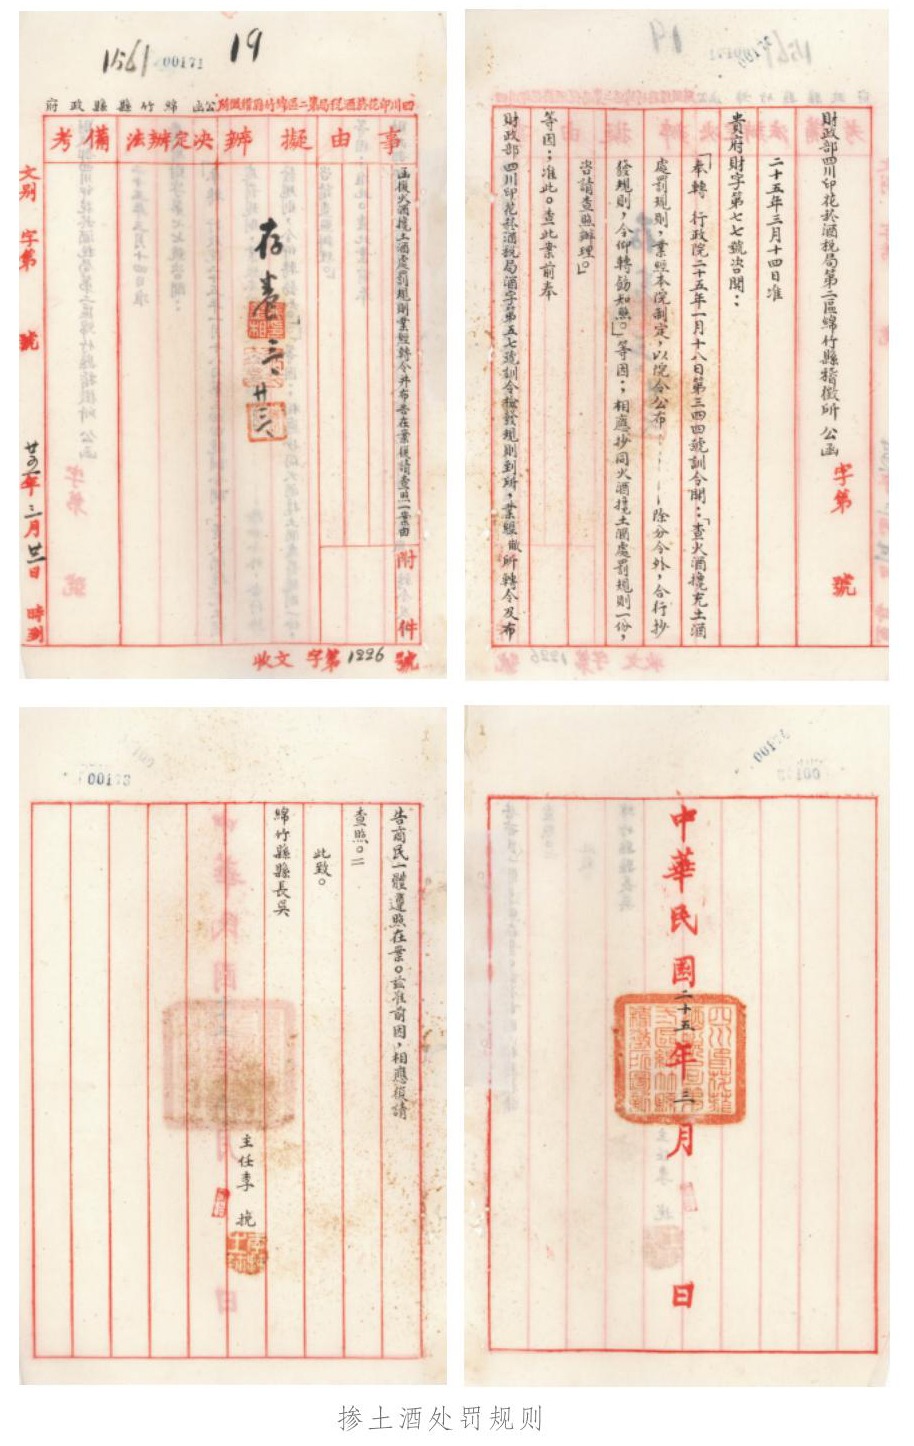 19
1561
00171
四川印花菸酒稅局第二區綿竹縣稽徵所公函 綿竹縣縣政府
事由
擬辦
決定辦法
備考
函復火酒攙土酒處罰規則業經轉令并布告在案復請查照一案由
附件
存查 三、廿三、
文别 字第 號
廿五年三月廿一日 時到
收文 字第1226號
財政部四川印花菸酒稅局第二區綿竹縣稽徵所 公函 字第 號
二十五年三月十四日准
貴府財字第七七號咨開：
「奉轉 行政院二十五年一月十八日第三四四號訓令開：「查火酒攙充土酒
處罰規則，業經本院制定，以院令公布……除分令外，合行抄
發規則，令仰轉飭知照。」等因；相應抄同火酒攙土酒處罰規則一份，
咨請查照辦理。」
等因；准此。查此案前奉
財政部四川印花菸酒稅局酒字第五七號訓令檢發規則到所，業經 徵所轉令及布
00173
告商民一體遵照在案。茲准前因，相應復請
查照。二
此致。
綿竹縣縣長吳
主任李 挽
中華民國二十五年三月 日
掺土酒处罚规则